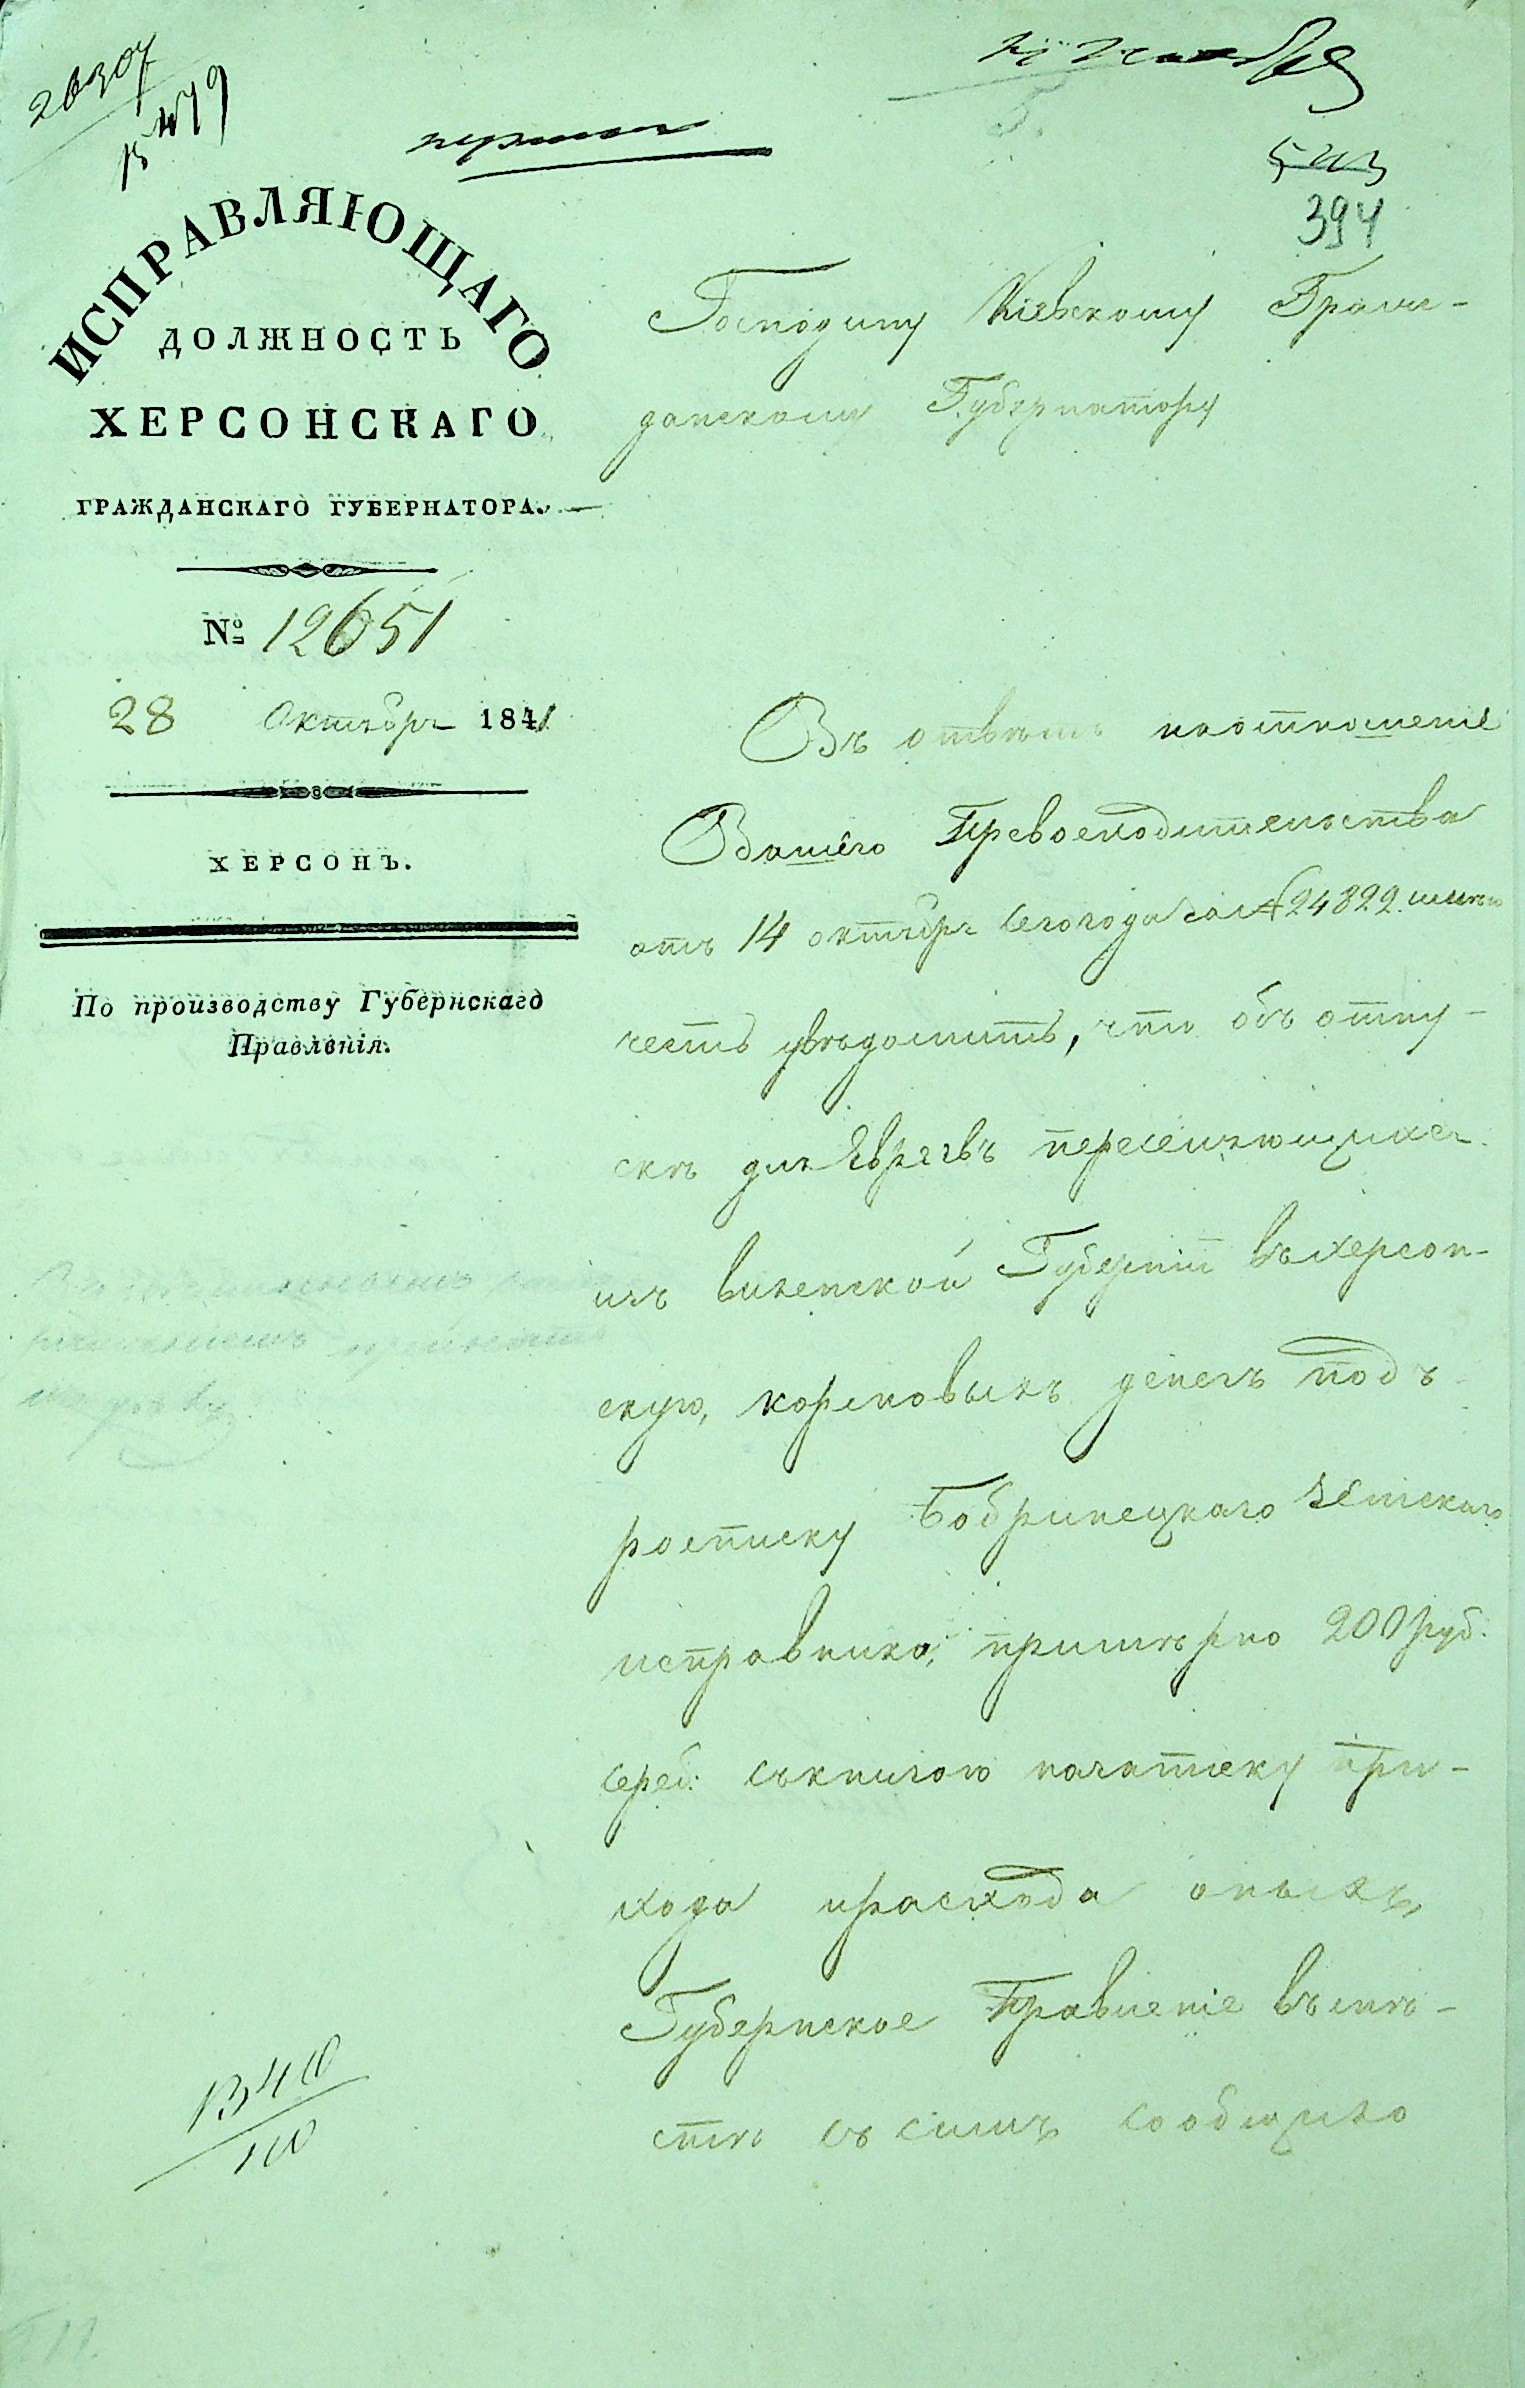 20307
394
ИСПРАВЛЯЮЩАГО
ДОЛЖНОСТЬ
ХЕРСОНСКАГО
ГРАЖДАНСКАГО ГУБЕРНАТОРА.
№ 12651
28 Октября 1841
ХЕРСОНЪ.
По производству Губернскаго
Правленія.
Господину Кіевскому Граж-
данскому Губернатору
Въ ответъ на отношеніе
Вашего Превосходительства
отъ 14 октября сего года за № 24822 имѣю
честь увѣдомить, что объ отпу-
скѣ для Евреевъ переселяющихся
изъ Витепской Губерніи въ Херсон-
скую, кормовыхъ денегъ подъ
росписку Бобринецкаго Земскаго
исправника, примѣрно 200 руб.
сереб: съ книгою на записку при-
хода и расхода оныхъ,
Губернское Правленіе вмѣ-
стѣ съ симъ сообщило